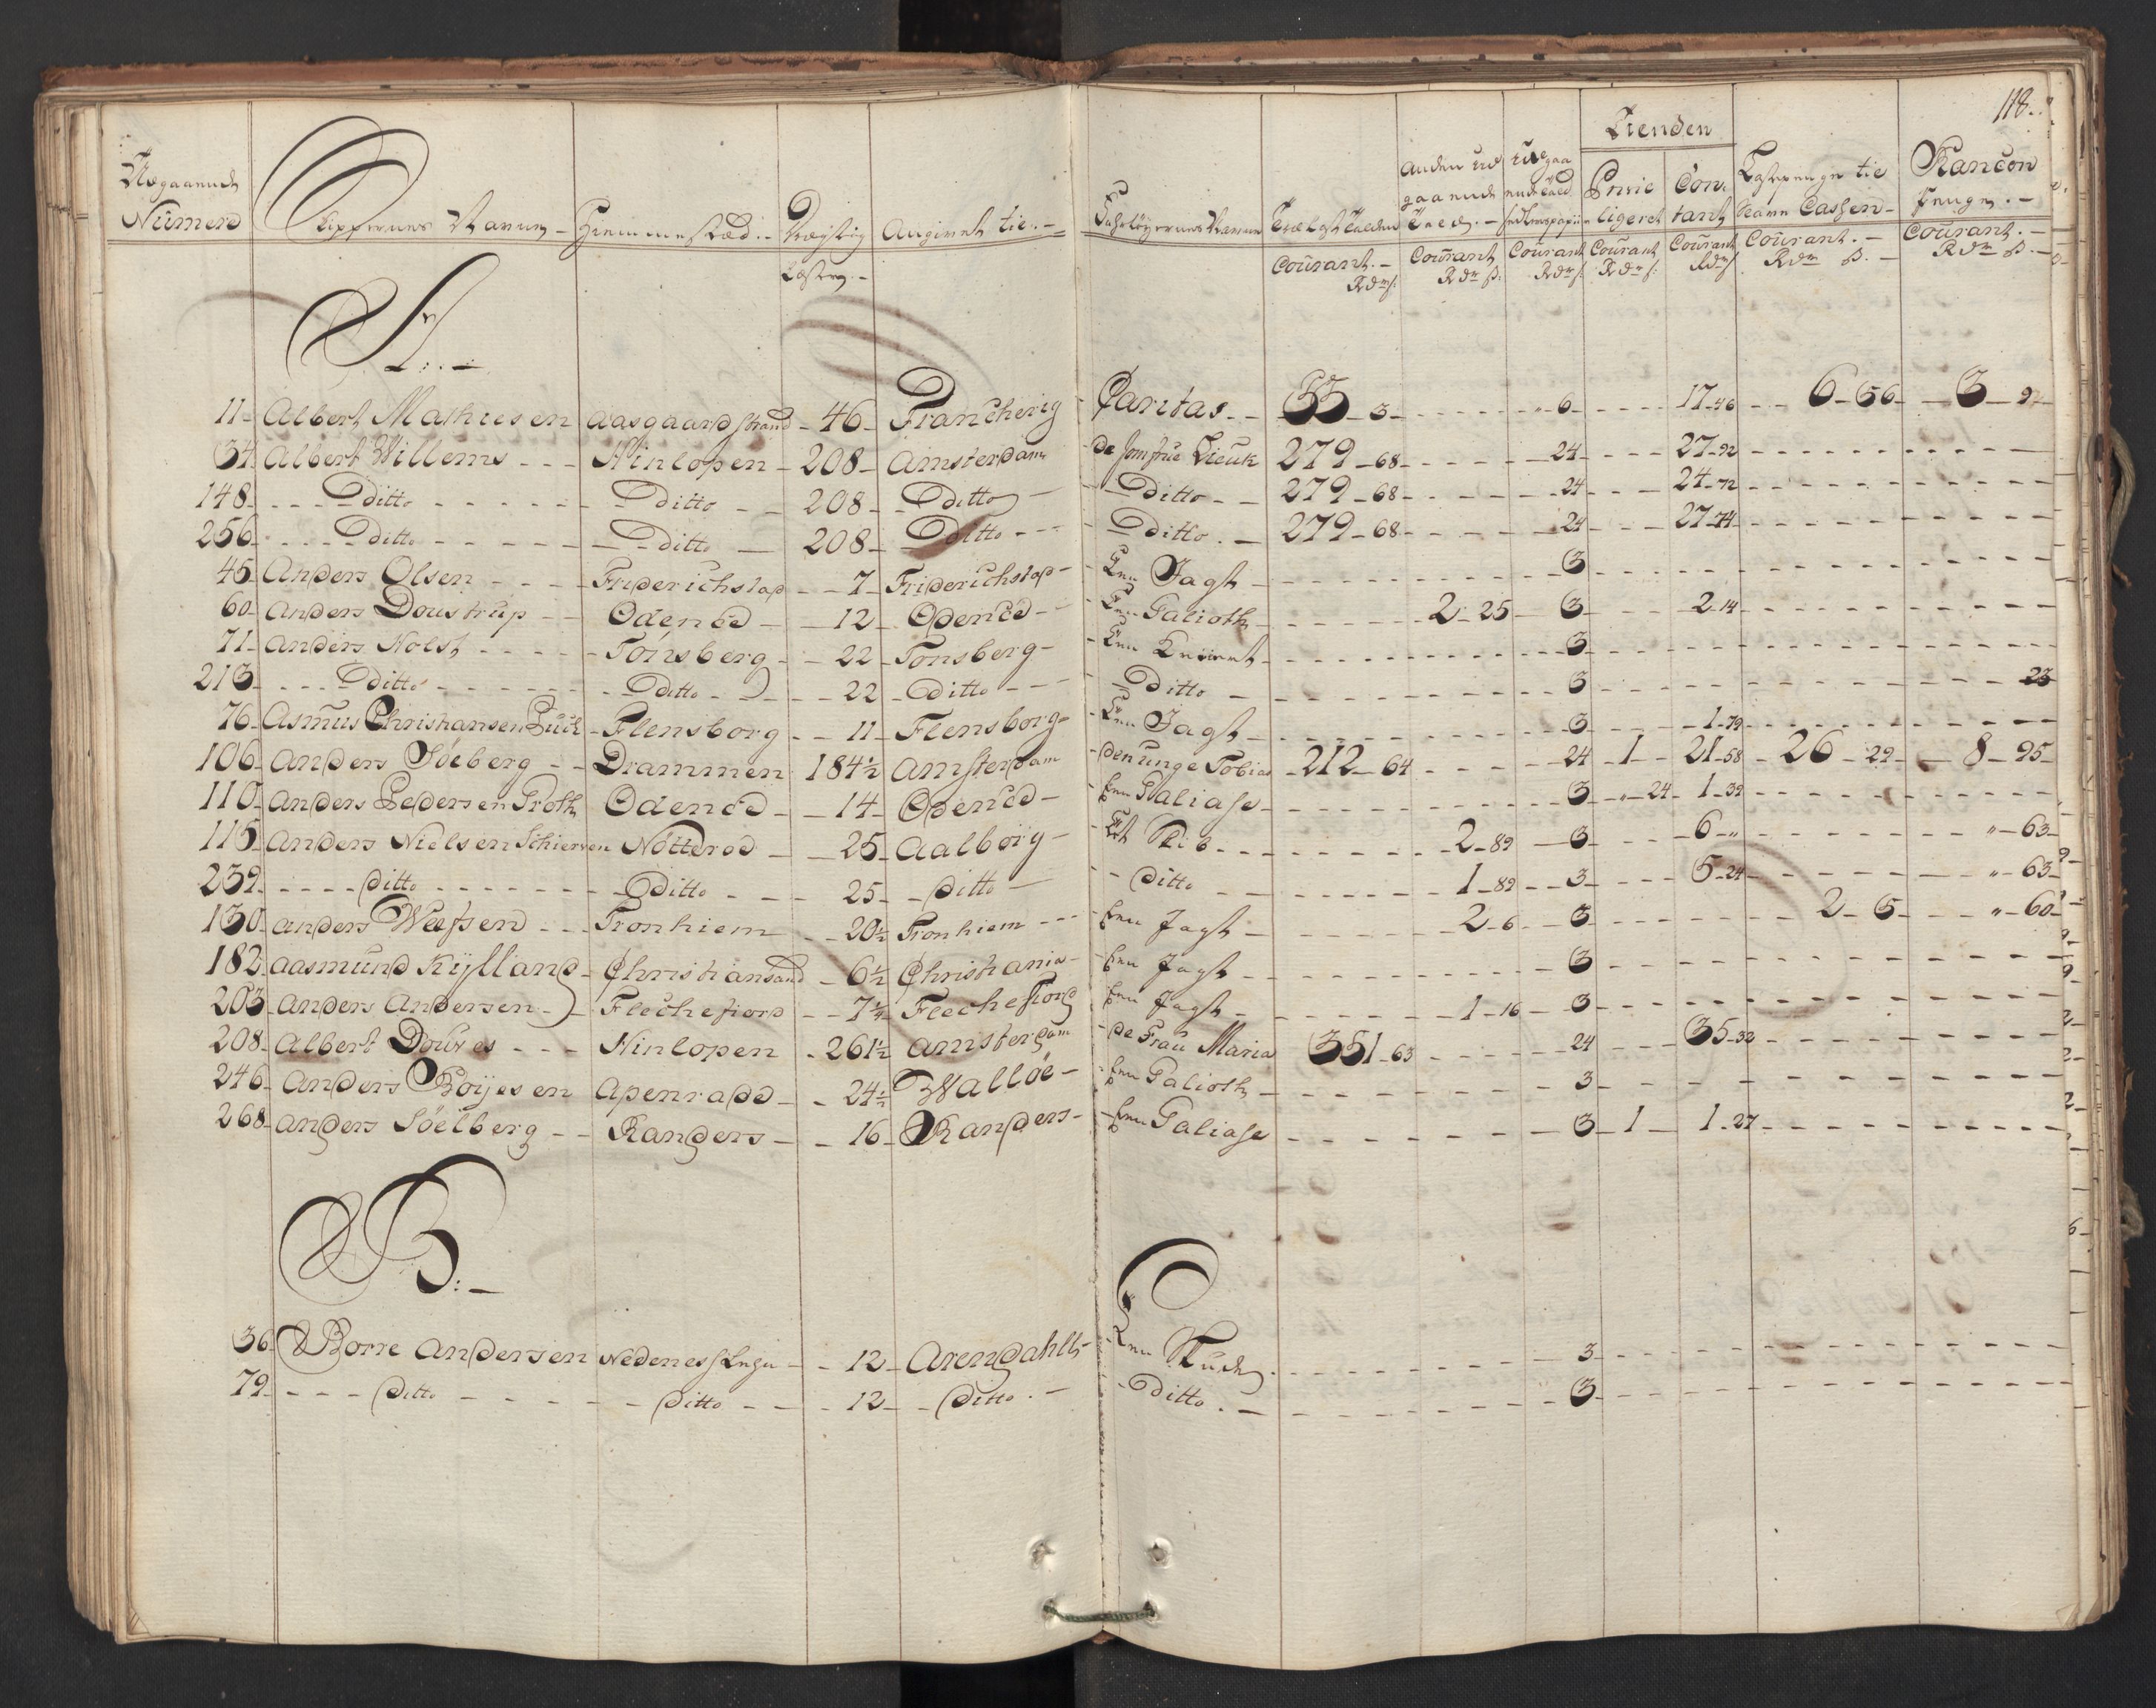 118.
Udgaaende Numero | Skippernes Navne | Hiemmestæd | Drægtig Læster | Angivet til | Fahrtøyernes Navne | Trælast Tolden Courant Rdr s: | Anden Udgaaende Told Courant Rdr s: | Courant Rdr s: | Tienden Privilegeret Courant Rdr s: | Tienden Contant Courant Rdr s | Lastepenge til Cassen Courant Rdr s. | Rancon Penge Courant Rdr s.
A.
11 Albert Mathiesen Aasgaardstrand 46 Francherig Caritas 55-3 6 17-46 6-56 3-92
34 Albert Willems Hinlopen 208 Amsterdam de Jomfue Lieuk 279-68 24 27-92
148 Ditto Ditto 208 Ditto Ditto 279-68 24 24-72
256 Ditto Ditto 208 Ditto Ditto 279-68 24 27-74
45 Anders Olsen Friderichstad 7 Friderichstad Een Jagt 3
60 Anders Doustrup Odensé 12 Odensé Een Galioth 2-25 3 2-14
71 Anders Holst Tönsberg 22 Tonsberg Een 3
213 Ditto Ditto 22 Ditto Ditto 3 23
76 Asmus Christiansen Flensborg 11 Flensborg Een Jagt 3 1-79
106 Anders Söeberg Drammen 184½ Amsterdam den unge Tobias 212-64 24 1 21-58 26-29 8-95
110 Anders Pedersen Groth Odensé 14 Odensé Een Galiase 3 "-24 1-39
115 Anders Nielsen Schierven Nötteröe 25 Aalborg Et Skib 2-89 3 6-" "-63
239 Ditto Ditto 25 Ditto Ditto 1-89 3 5-24 "-63
130 Anders Tronhiem 20½ Tronhiem Een Jagt 2-6 3 2-5 "-60
182 Aasmund Kylland Christiansand 6½ Christiania Een Jagt 3
203 Anders Andersen Flechefiord 7¼ Flechefiord Een Jagt 1-16 3
208 Albert Douves Hinlopen 261½ Amsterdam de Frau Maria 351-63 24 35-32
246 Anders Boijesen Apenrade 24½ Walløe Een Galioth 3
268 Anders Söelberg Randers 16 Randers Een Galiase 3 1 1-27
B.
36 Borre Andersen Nedenes 12 Arendahll Een Skude 3
79 Ditto Ditto 12 Ditto Ditto 3